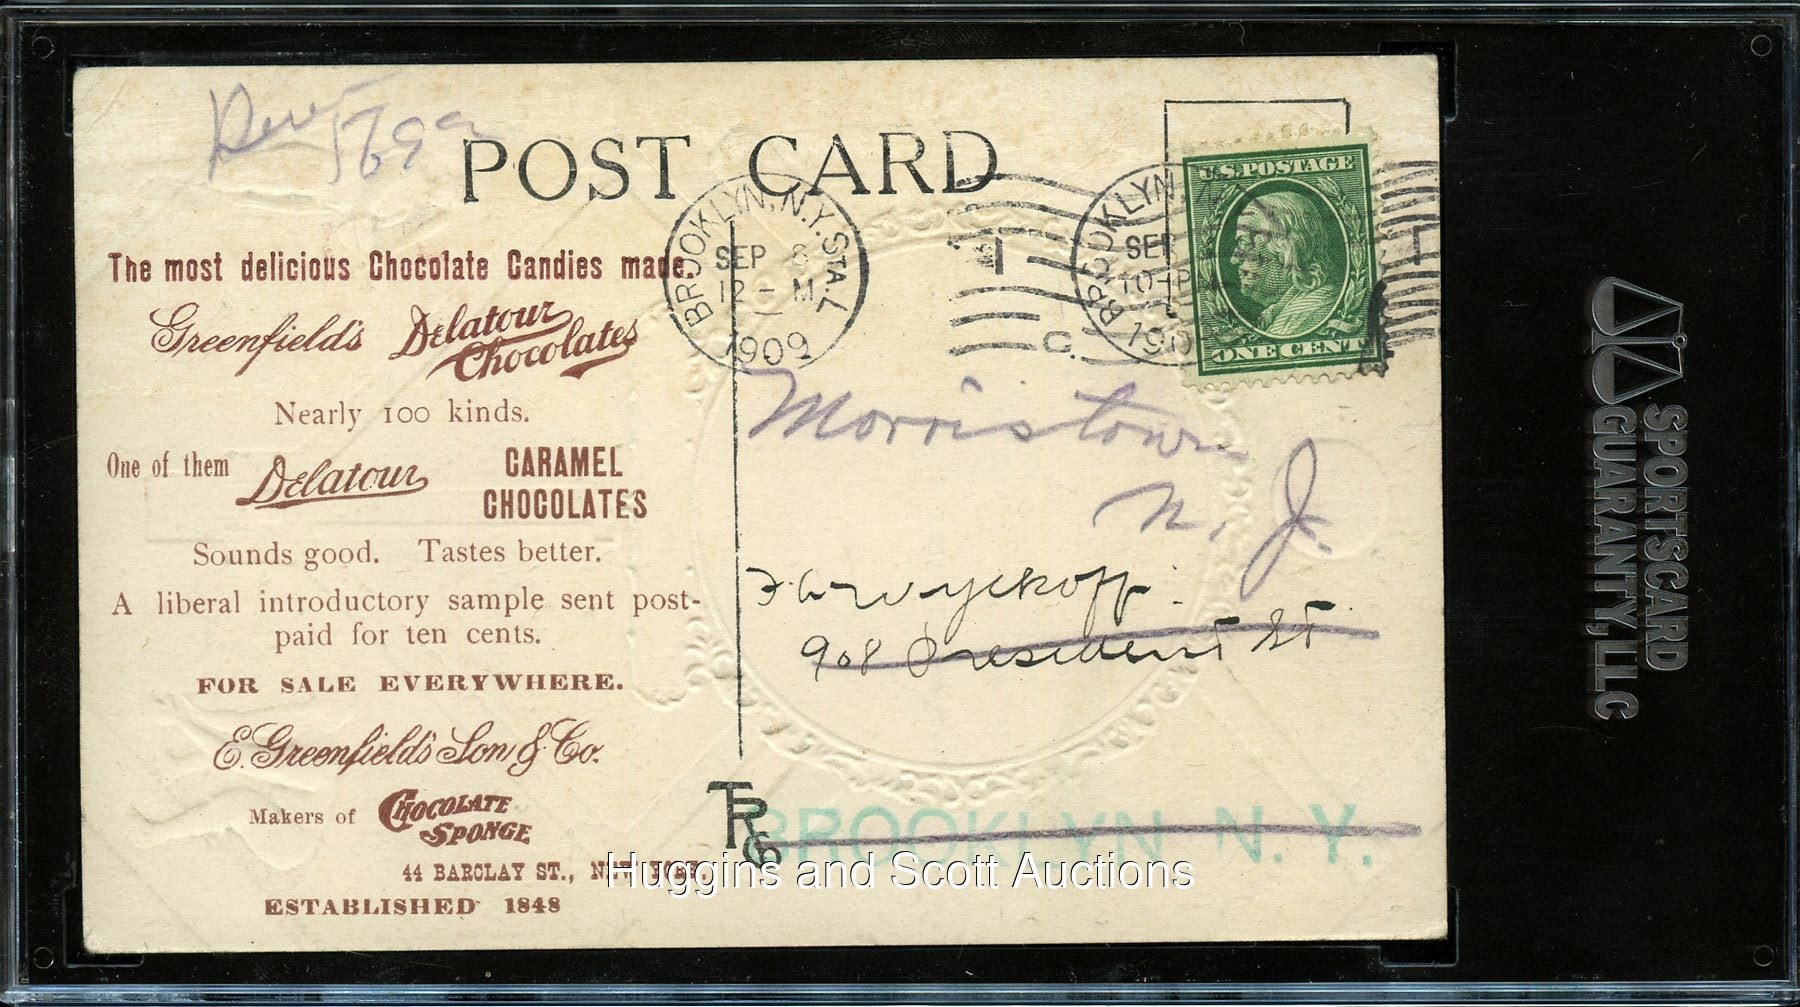 569
POST CARD
BROOKLYN, N.Y. STA. L
SEP 8
12 - M
1909
1
C.
BROOKLYN,
SEP
10-PM
190
U.S. POSTAGE
ONE CENT
The most delicious Chocolate Candies made.
Greenfield's Delatour Chocolates
Nearly 100 kinds.
One of them Delatour CARAMEL CHOCOLATES
Sounds good. Tastes better.
A liberal introductory sample sent post-
paid for ten cents.
FOR SALE EVERYWHERE.
E. Greenfield's Son & Co.
Makers of CHOCOLATE SPONGE
44 BARCLAY ST., NEW YORK.
ESTABLISHED 1848
Morristown
N. J.
Wyckoff.
908 President St
BROOKLYN N. Y.
Huggins and Scott Auctions
SPORTSCARD
GUARANTY, LLC